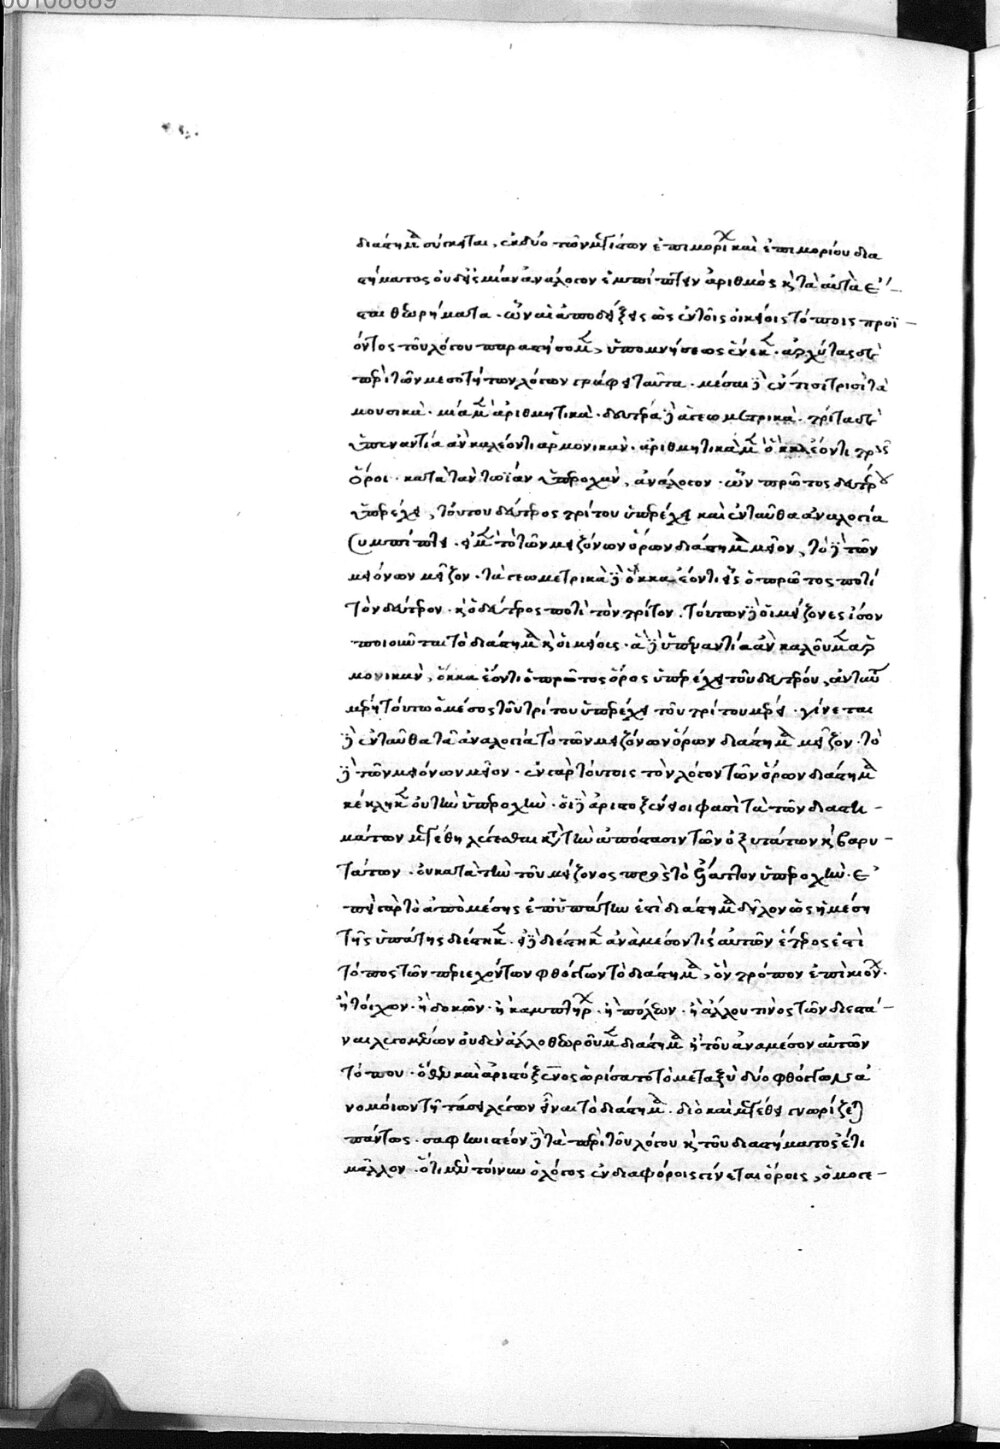 διάστημα σύγκειται, ἐκ δύο τῶν μεγίστων ἐπιμορίων καὶ ἐπιμορίου δια
στήματος οὐδεὶς μέσος ἀνάλογον ἐμπίπτει ἀριθμὸς κατὰ αὐτὰ
ται θεωρήματα. ὧν αἱ ἀποδείξεις ὡς ἐν τοῖς οἰκείοις τόποις προϊ-
όντος τοῦ λόγου παραστήσομεν, ὑπομνήσεως ἕνεκα. ἀρχύτας δὲ
περὶ τῶν μεσοτήτων λέγων γράφει ταῦτα. μέσαι δὲ ἐντι τρὶς τᾶ
μουσικᾶ. μία μὲν ἀριθμητικὰ. δευτέρα δὲ ἁ γεωμετρικὰ. τρίτα δὲ
ὑπεναντία ἃν καλέοντι ἁρμονικὰν. ἀριθμητικὰ μὲν ὅκκα ἔοντι τρεῖς
ὅροι. κατὰ τὰν τοίαν ὑπεροχὰν, ἀνάλογον. ὧν πρῶτος δευτέρου
ὑπερέχει, τούτου δεύτερος τρίτου ὑπερέχει καὶ ἐν ταύτα ἀναλογία
συμπίπτει. εἶμεν τὸ τῶν μειζόνων ὅρων διάστημα μεῖον, τὸ δὲ τῶν
μειόνων μεῖζον. τὰ γεωμετρικὰ δὲ ὅκκα ἔοντι εἷς ὁ πρῶτος ποτὶ
τὸν δεύτερον. καὶ ὁ δεύτερος ποτὶ τὸν τρίτον. τούτων δὲ οἱ μείζονες ἴσον
ποιοῦνται τὸ διάστημα καὶ οἱ μείους. ἁ δὲ ὑπεναντία ἃν καλοῦμεν ἁρ
μονικὰν, ὅκκα ἔοντι ὁ πρῶτος ὅρος ὑπερέχει τοῦ δευτέρου, αὐταύτου
μέρει τούτω ὁ μέσος τοῦ τρίτου ὑπερέχει τοῦ τρίτου μέρει. γίνεται
δὲ ἐν ταύτα τᾶ ἀναλογία τὸ τῶν μειζόνων ὅρων διάστημα μεῖζον. τὸ
δὲ τῶν μειόνων μεῖον. ἐν γὰρ τούτοις τὸν λόγον τῶν ὅρων διάστημα
κέκληκεν οὐ τὴν ὑπεροχὴν. οἱ δὲ ἀριστοξένειοι φασὶ τὰ τῶν διαστη-
μάτων μεγέθη λέγεσθαι κατὰ τὴν ἀπόστασιν τῶν ὀξυτάτων καὶ βαρυ-
τάτων. οὐ κατὰ τὴν τοῦ μείζονος πρὸς τὸ ἔλαττον ὑπεροχὴν. ἐ
πεὶ γὰρ τὸ ἀπὸ μέσης ἐπὶ ὑπάτην ἐστὶ διάστημα δῆλον ὡς ἡ μέση
τῆς ὑπάτης διέστηκεν. εἰ δὲ διέστηκεν ἀνὰ μέσον τίς αὐτῶν ἕτερος ἐστὶ
τόπος τῶν περιεχόντων φθόγγων τὸ διάστημα, ὃν τρόπον ἐπὶ κιόνων.
ἢ τοίχων. ἢ δοκῶν. ἢ καμπτήρων. ἢ πόλεων. ἢ ἄλλου τινὸς τῶν διεστά-
ναι λεγομένων οὐδὲν ἄλλο θεωροῦμεν διάστημα ἢ τοῦ ἀναμέσον αὐτῶν
τόπου. ὅθεν καὶ ἀριστόξενος ὡρίσατο τὸ μεταξὺ δύο φθόγγων ἀ
νομοίων τῇ τάσει λέγων εἶναι τὸ διάστημα. διὸ καὶ μεγέθει γνωρίζεται
πάντως. σαφηνιστέον δὲ τὰ περὶ τοῦ λόγου καὶ τοῦ διαστήματος ἔτι
μᾶλλον. ὅτι μὲν τοίνυν ὁ λόγος ἐν διαφόροις γίνεται ὅροις, ὁμογε-